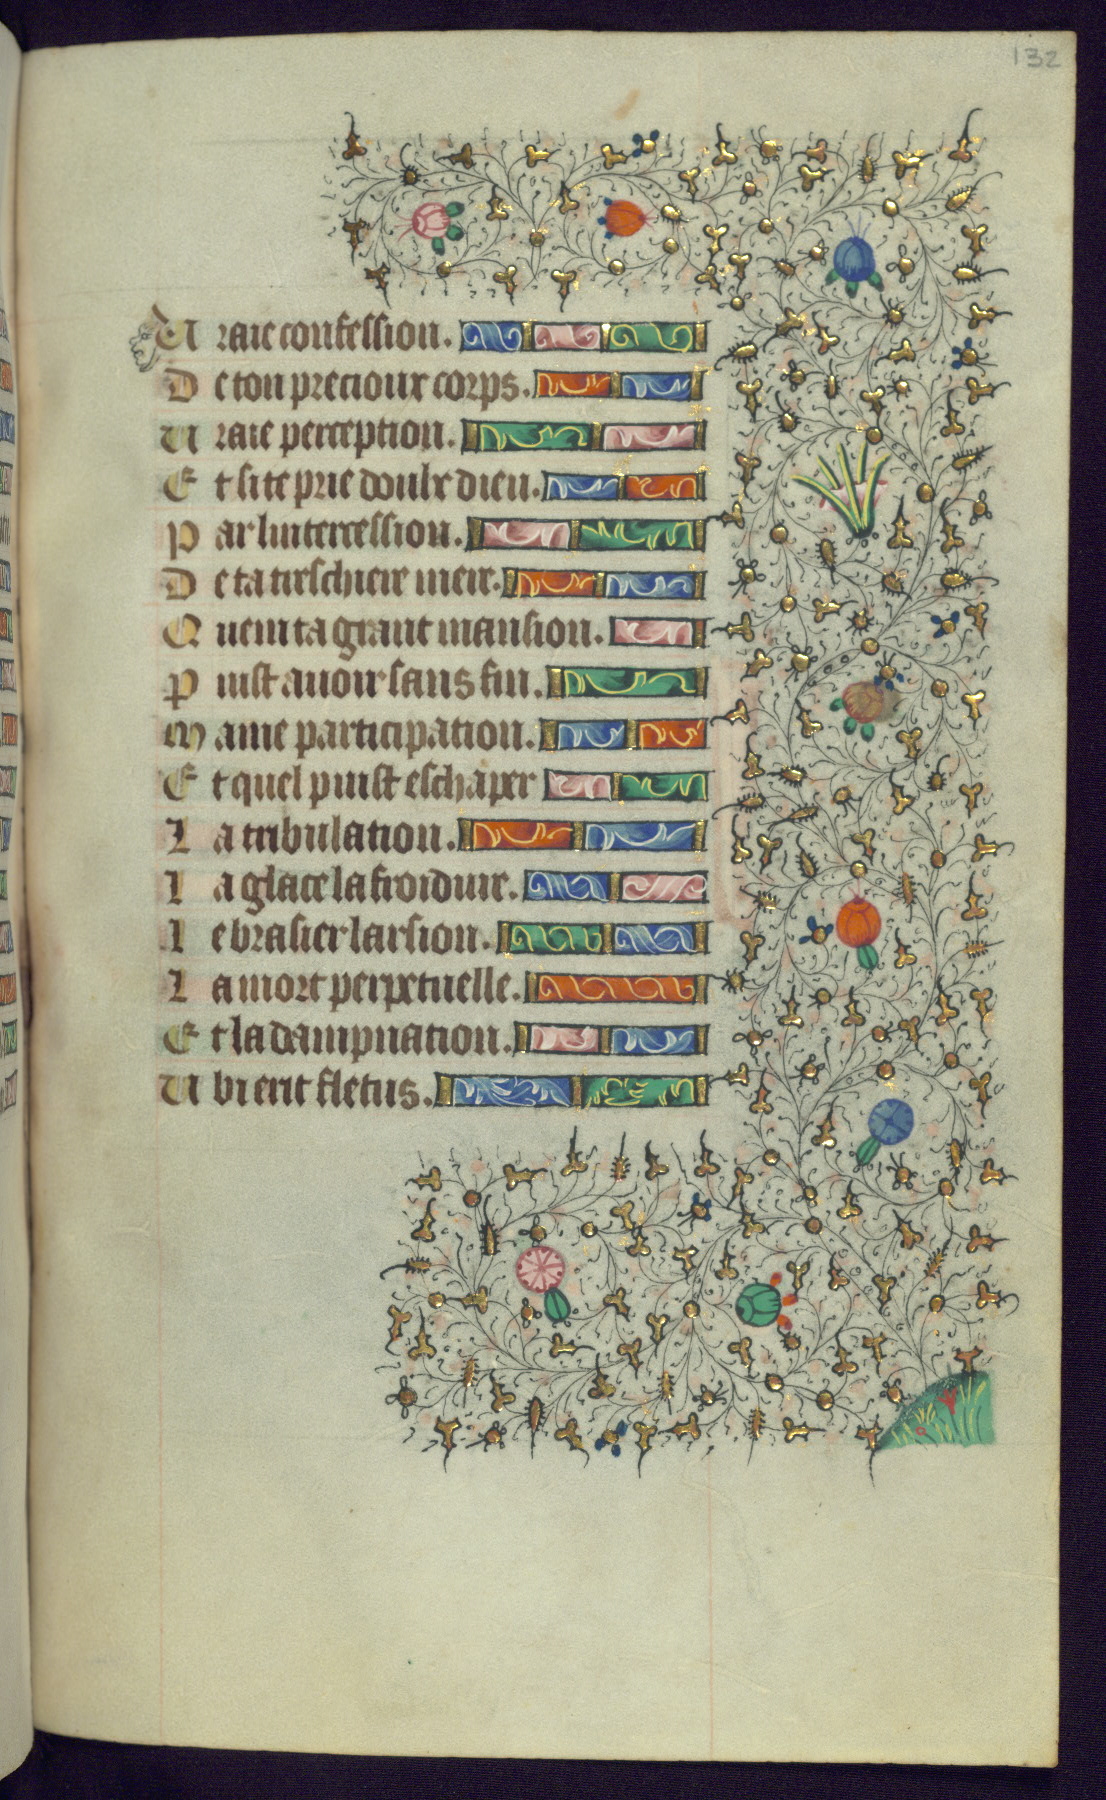 132
Uraie confession.
De ton precioux corps.
Uraie perception.
Et si te prie doulx dieu.
Par lintercession.
De ta tirschiere meir.
Quem ta grant mansion.
Puist auoir sans fin.
Mame participation.
Et quel puist eschaper
La tribulation.
La glace la froidure.
Le brasier larsion.
La mort perpetuelle.
Et la dampnation.
Ubi erit fletus.